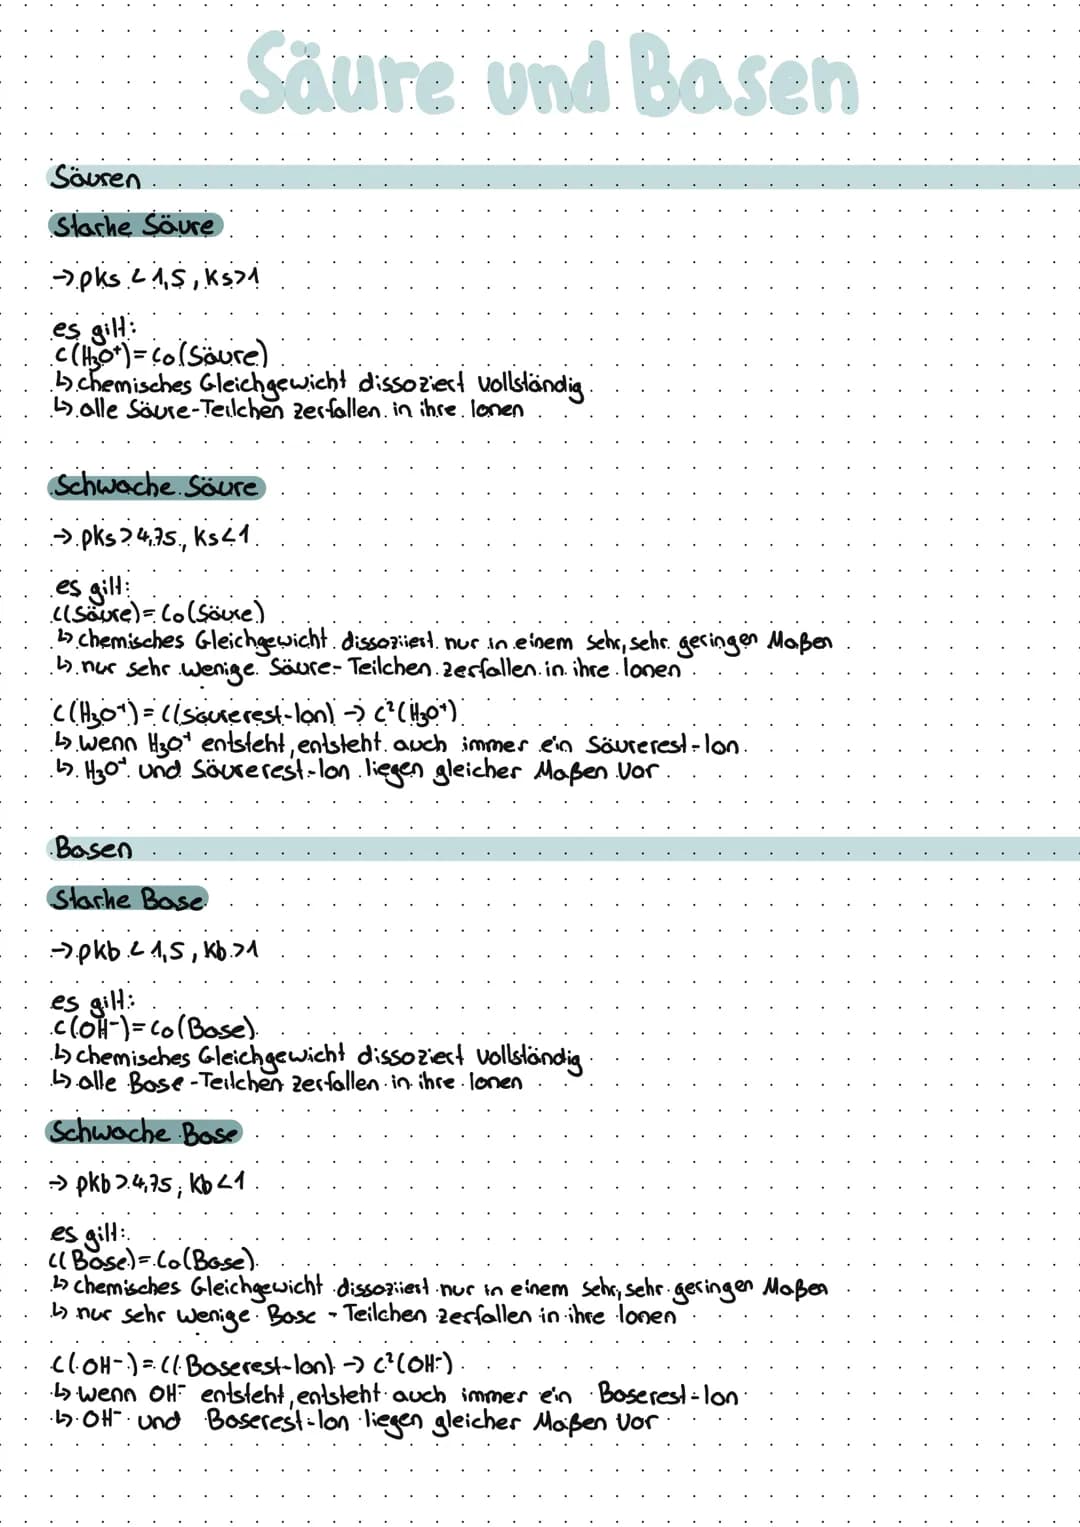 Säure und Basen
Säuren
Starke Säure
→ pks < 1,5, Ks>1
es gilt:
c(H₃O⁺)= Co(Säure)
↳ chemisches Gleichgewicht dissoziert vollständig
↳ alle Säure-Teilchen zerfallen in ihre Ionen
Schwache Säure
→ pks > 4,75, ks<1
es gilt:
c(Säure)= Co(Säure)
↳ chemisches Gleichgewicht dissoziiert nur in einem sehr, sehr geringen Maßen
↳ nur sehr wenige Säure- Teilchen zerfallen in ihre Ionen
c(H₃O⁺) = c(säurerest-Ion) → c²(H₃O⁺)
↳ wenn H₃O⁺ entsteht, entsteht auch immer ein Säurerest-Ion
↳ H₃O⁺ und Säurerest-Ion liegen gleicher Maßen vor
Basen
Starke Base
→ pkb < 1,5, Kb >1
es gilt:
c(OH⁻)= Co(Base)
↳ chemisches Gleichgewicht dissoziert vollständig
↳ alle Base -Teilchen zerfallen in ihre Ionen
Schwache Base
→ pkb > 4,75, Kb <1
es gilt:
c(Base)= Co(Base)
↳ chemisches Gleichgewicht dissoziiert nur in einem sehr, sehr geringen Maßen
↳ nur sehr wenige Base - Teilchen zerfallen in ihre Ionen
c(OH⁻) = c(Baserest-Ion) → c²(OH⁻)
↳ wenn OH⁻ entsteht, entsteht auch immer ein Baserest-Ion
↳ OH⁻ und Baserest-Ion liegen gleicher Maßen vor